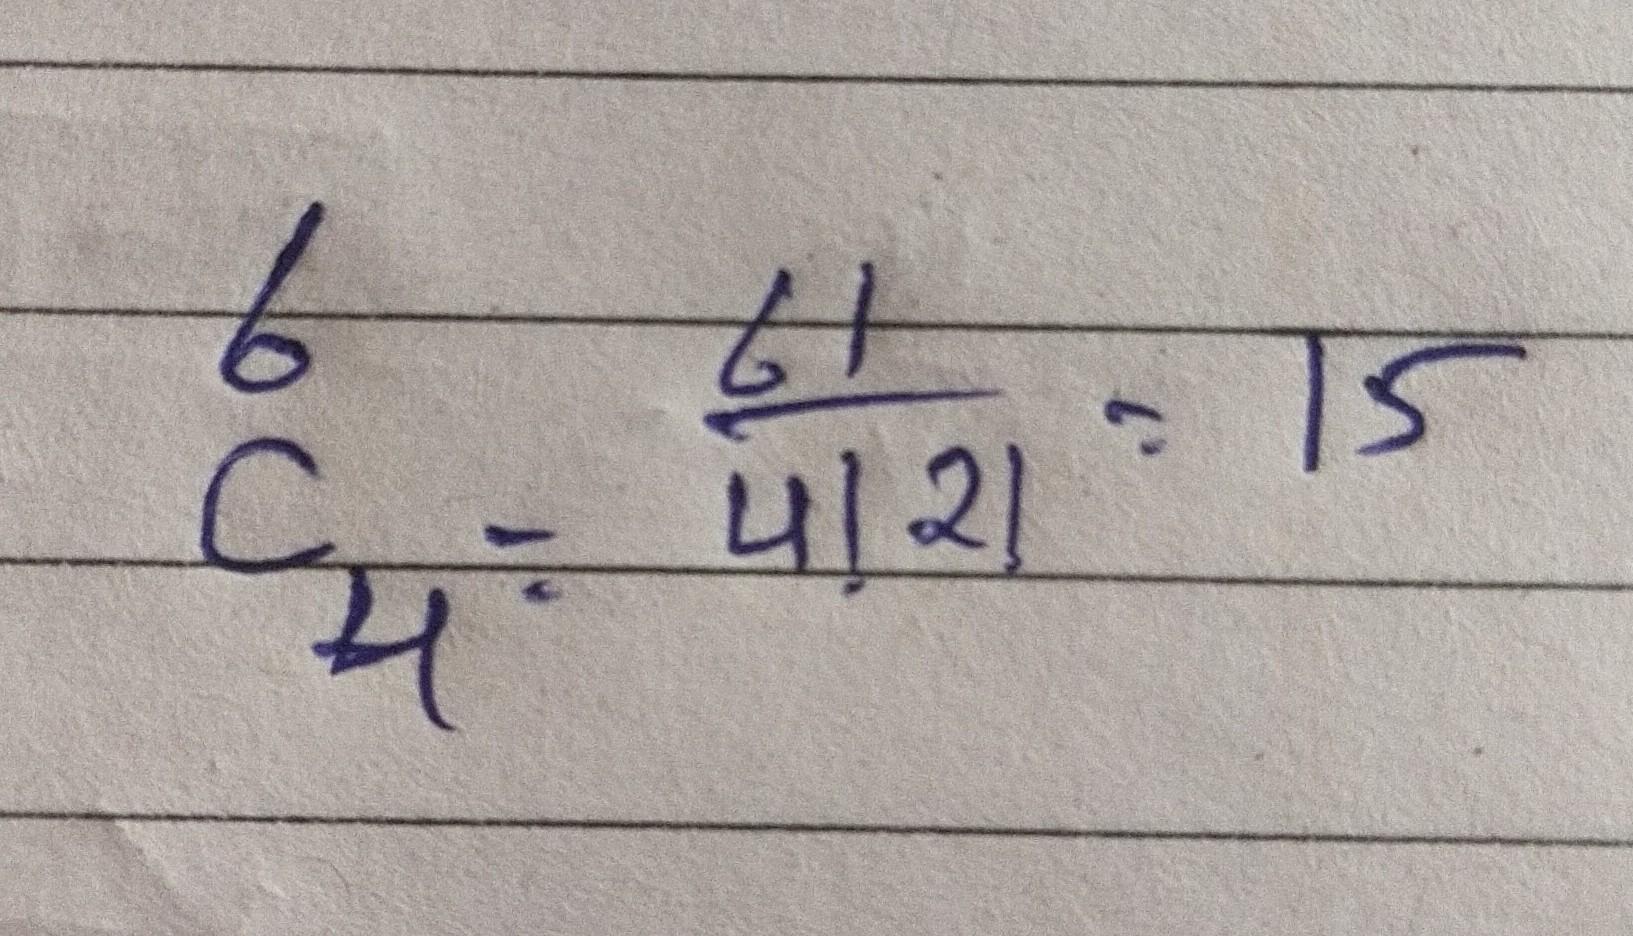 ⁶C₄ = 6!/4! 2! = 15